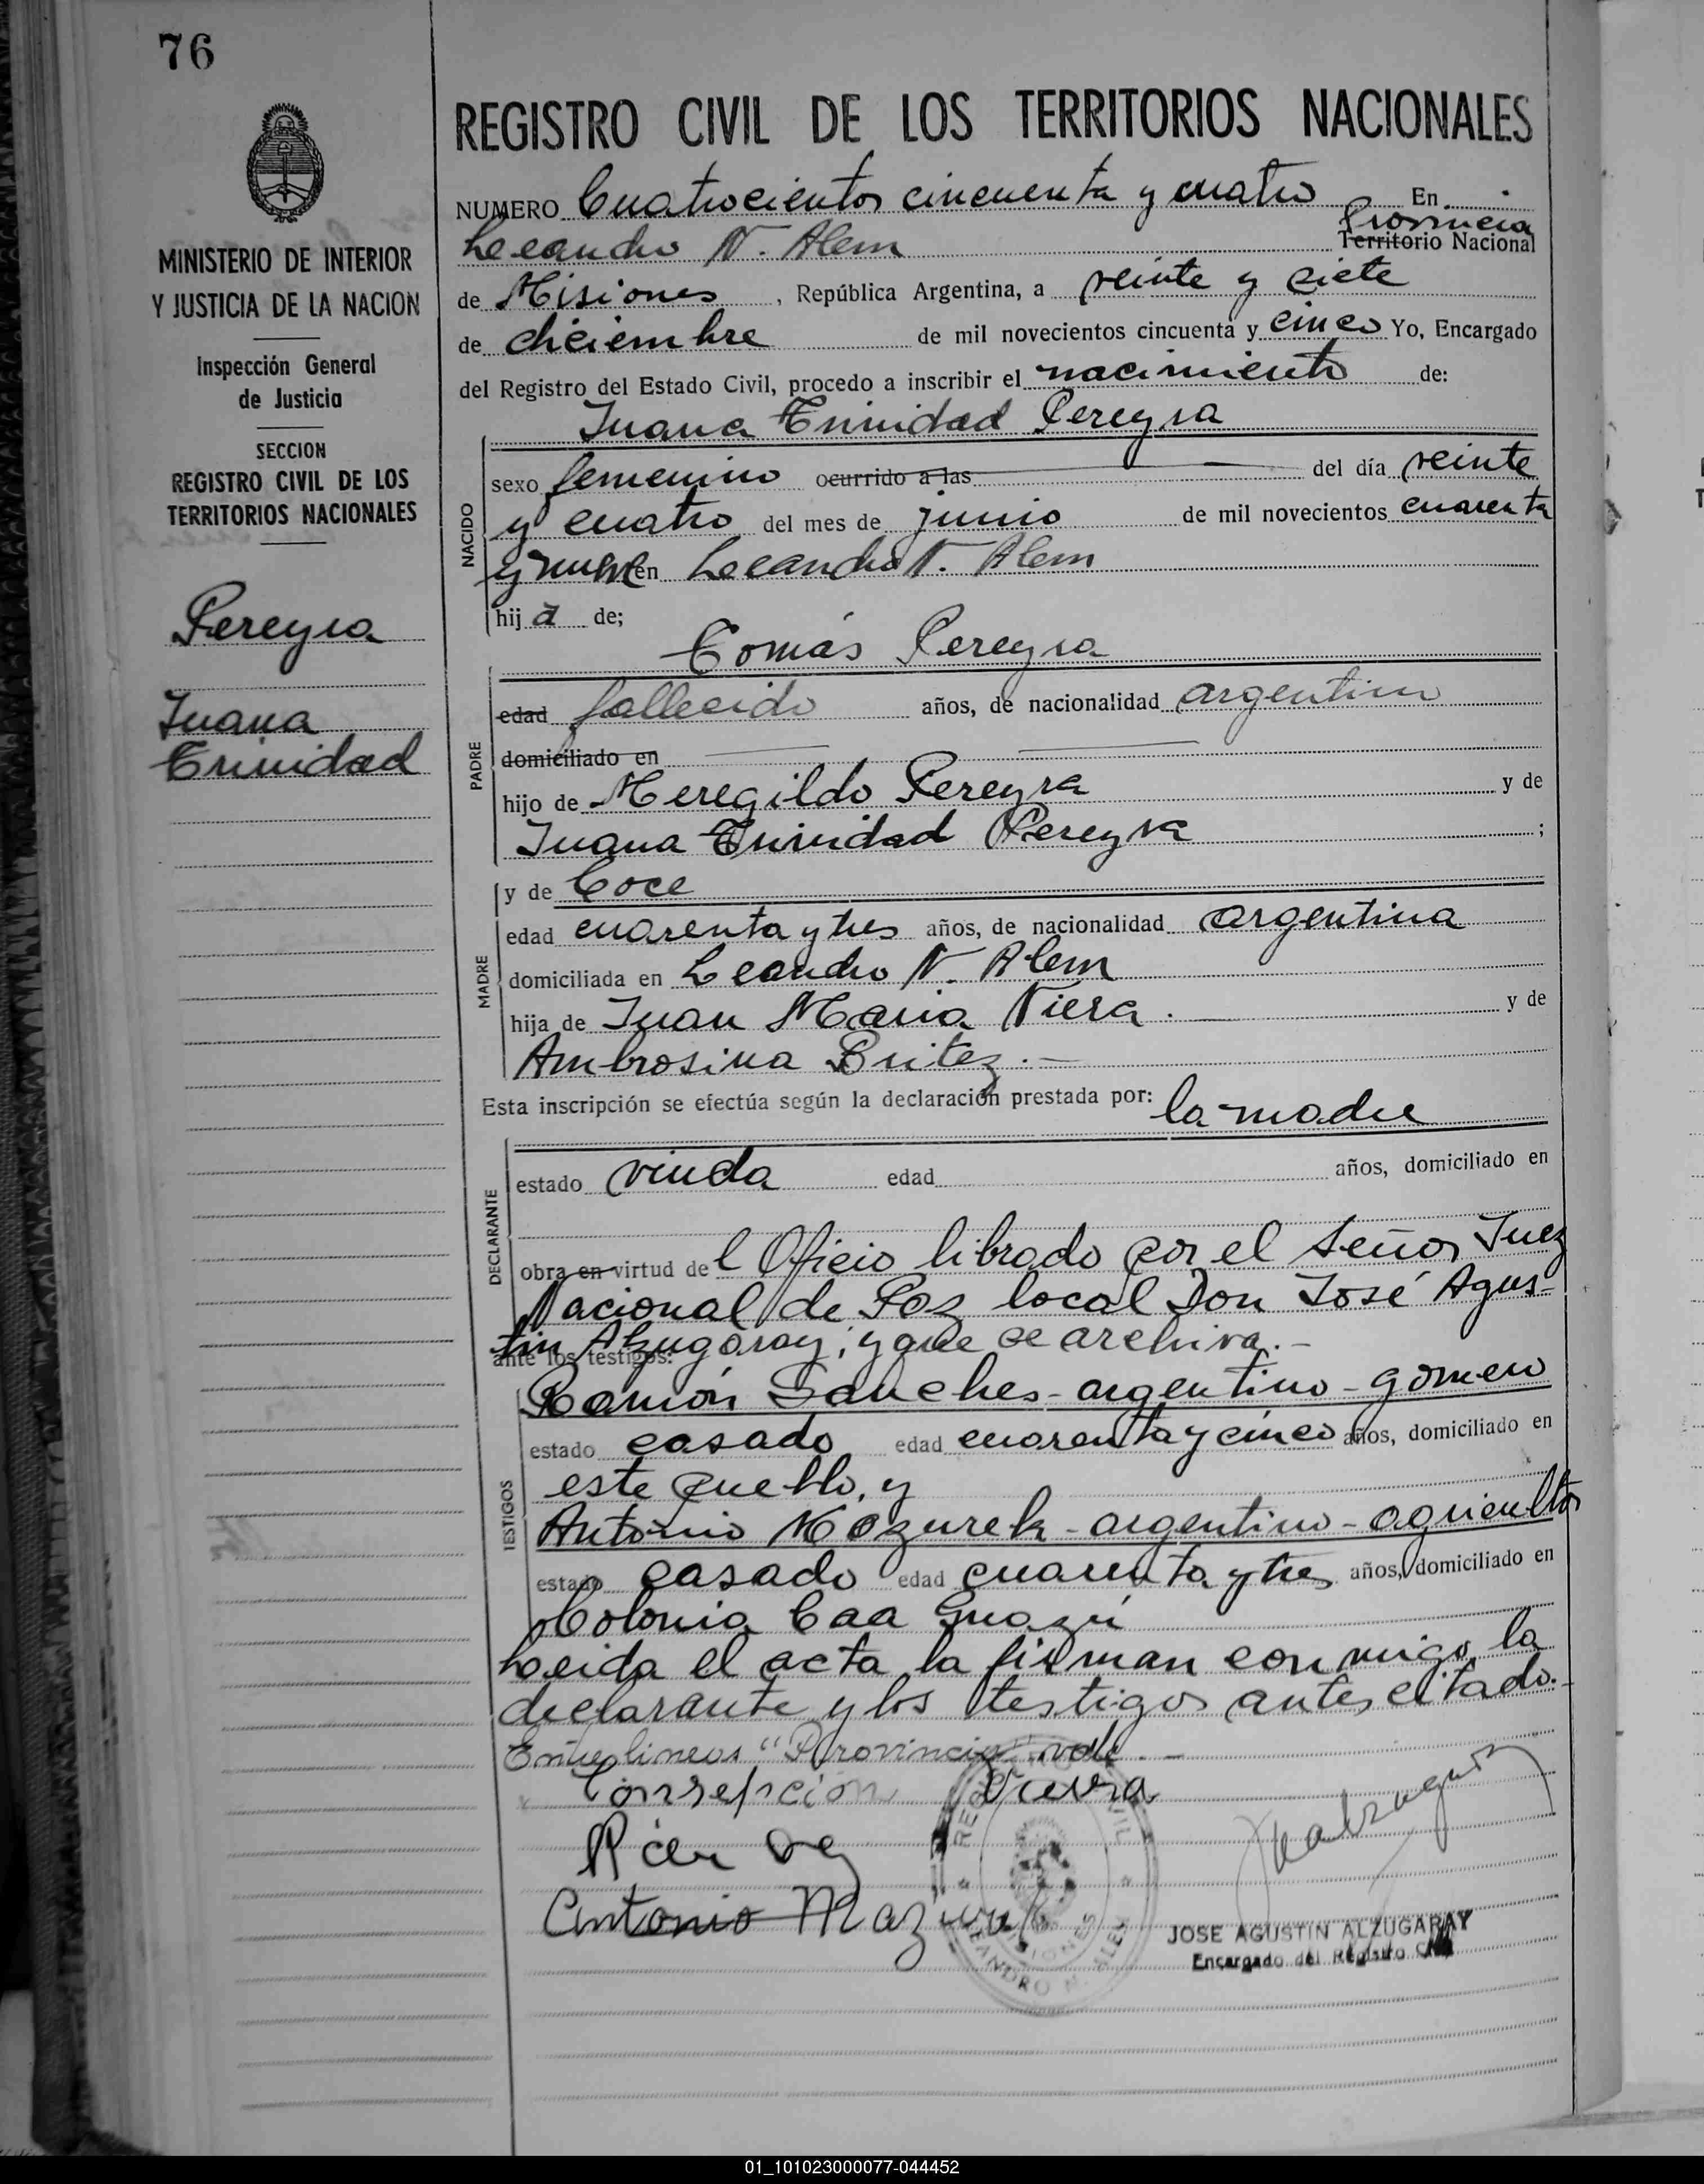 76
REGISTRO CIVIL DE LOS TERRITORIOS NACIONALES
MINISTERIO DE INTERIOR
Y JUSTICIA DE LA NACION
Inspección General
de Justicia
SECCION
REGISTRO CIVIL DE LOS
TERRITORIOS NACIONALES
Pereyra
Juana
Trinidad
NUMERO Cuatrocientos cincuenta y cuatro En
Provincia
Leandro N. Alem Territorio Nacional
de Misiones, República Argentina, a veinte y siete
de diciembre de mil novecientos cincuenta y cinco Yo, Encargado
del Registro del Estado Civil, procedo a inscribir el nacimiento de:
Juana Trinidad Pereyra
NACIDO
sexo femenino ocurrido a las del día veinte
y cuatro del mes de junio de mil novecientos cuarenta
y nueve en Leeandro N. Alem
hija de;
Tomás Pereyra
PADRE
edad fallecido años, de nacionalidad argentino
domiciliado en
hijo de Meregildo Pereyra y de
Juana Trinidad Pereyra ;
y de Coce
MADRE
edad cuarenta y tres años, de nacionalidad argentina
domiciliada en Leandro N. Alem
hija de Juan Maria Viera. y de
Ambrosina Britez.-
Esta inscripción se efectúa según la declaración prestada por: la madre
DECLARANTE
estado viuda edad años, domiciliado en
obra en virtud del Oficio librado por el señor Juez
Nacional de Paz local Don José Agus-
tin Alzugaray; y que se archiva.-
ante los testigos:
TESTIGOS
Ramón Sanches - argentino - gomero
estado casado edad cuarenta y cinco años, domiciliado en
este pueblo, y
Antonio Mazurek - argentino - agricultor
estado casado edad cuarenta y tres años, domiciliado en
Colonia Caa Guazú
Leeida el acta la firman conmigo, la
declarante y los testigos antes citado.-
Entrelineas "Provincia" vale.-
Viera
Antonio Mazurek
REGISTRO CIVIL
MISIONES
LEANDRO N. ALEM
JOSE AGUSTIN ALZUGARAY
Encargado del Registro Civil
01_101023000077-044452